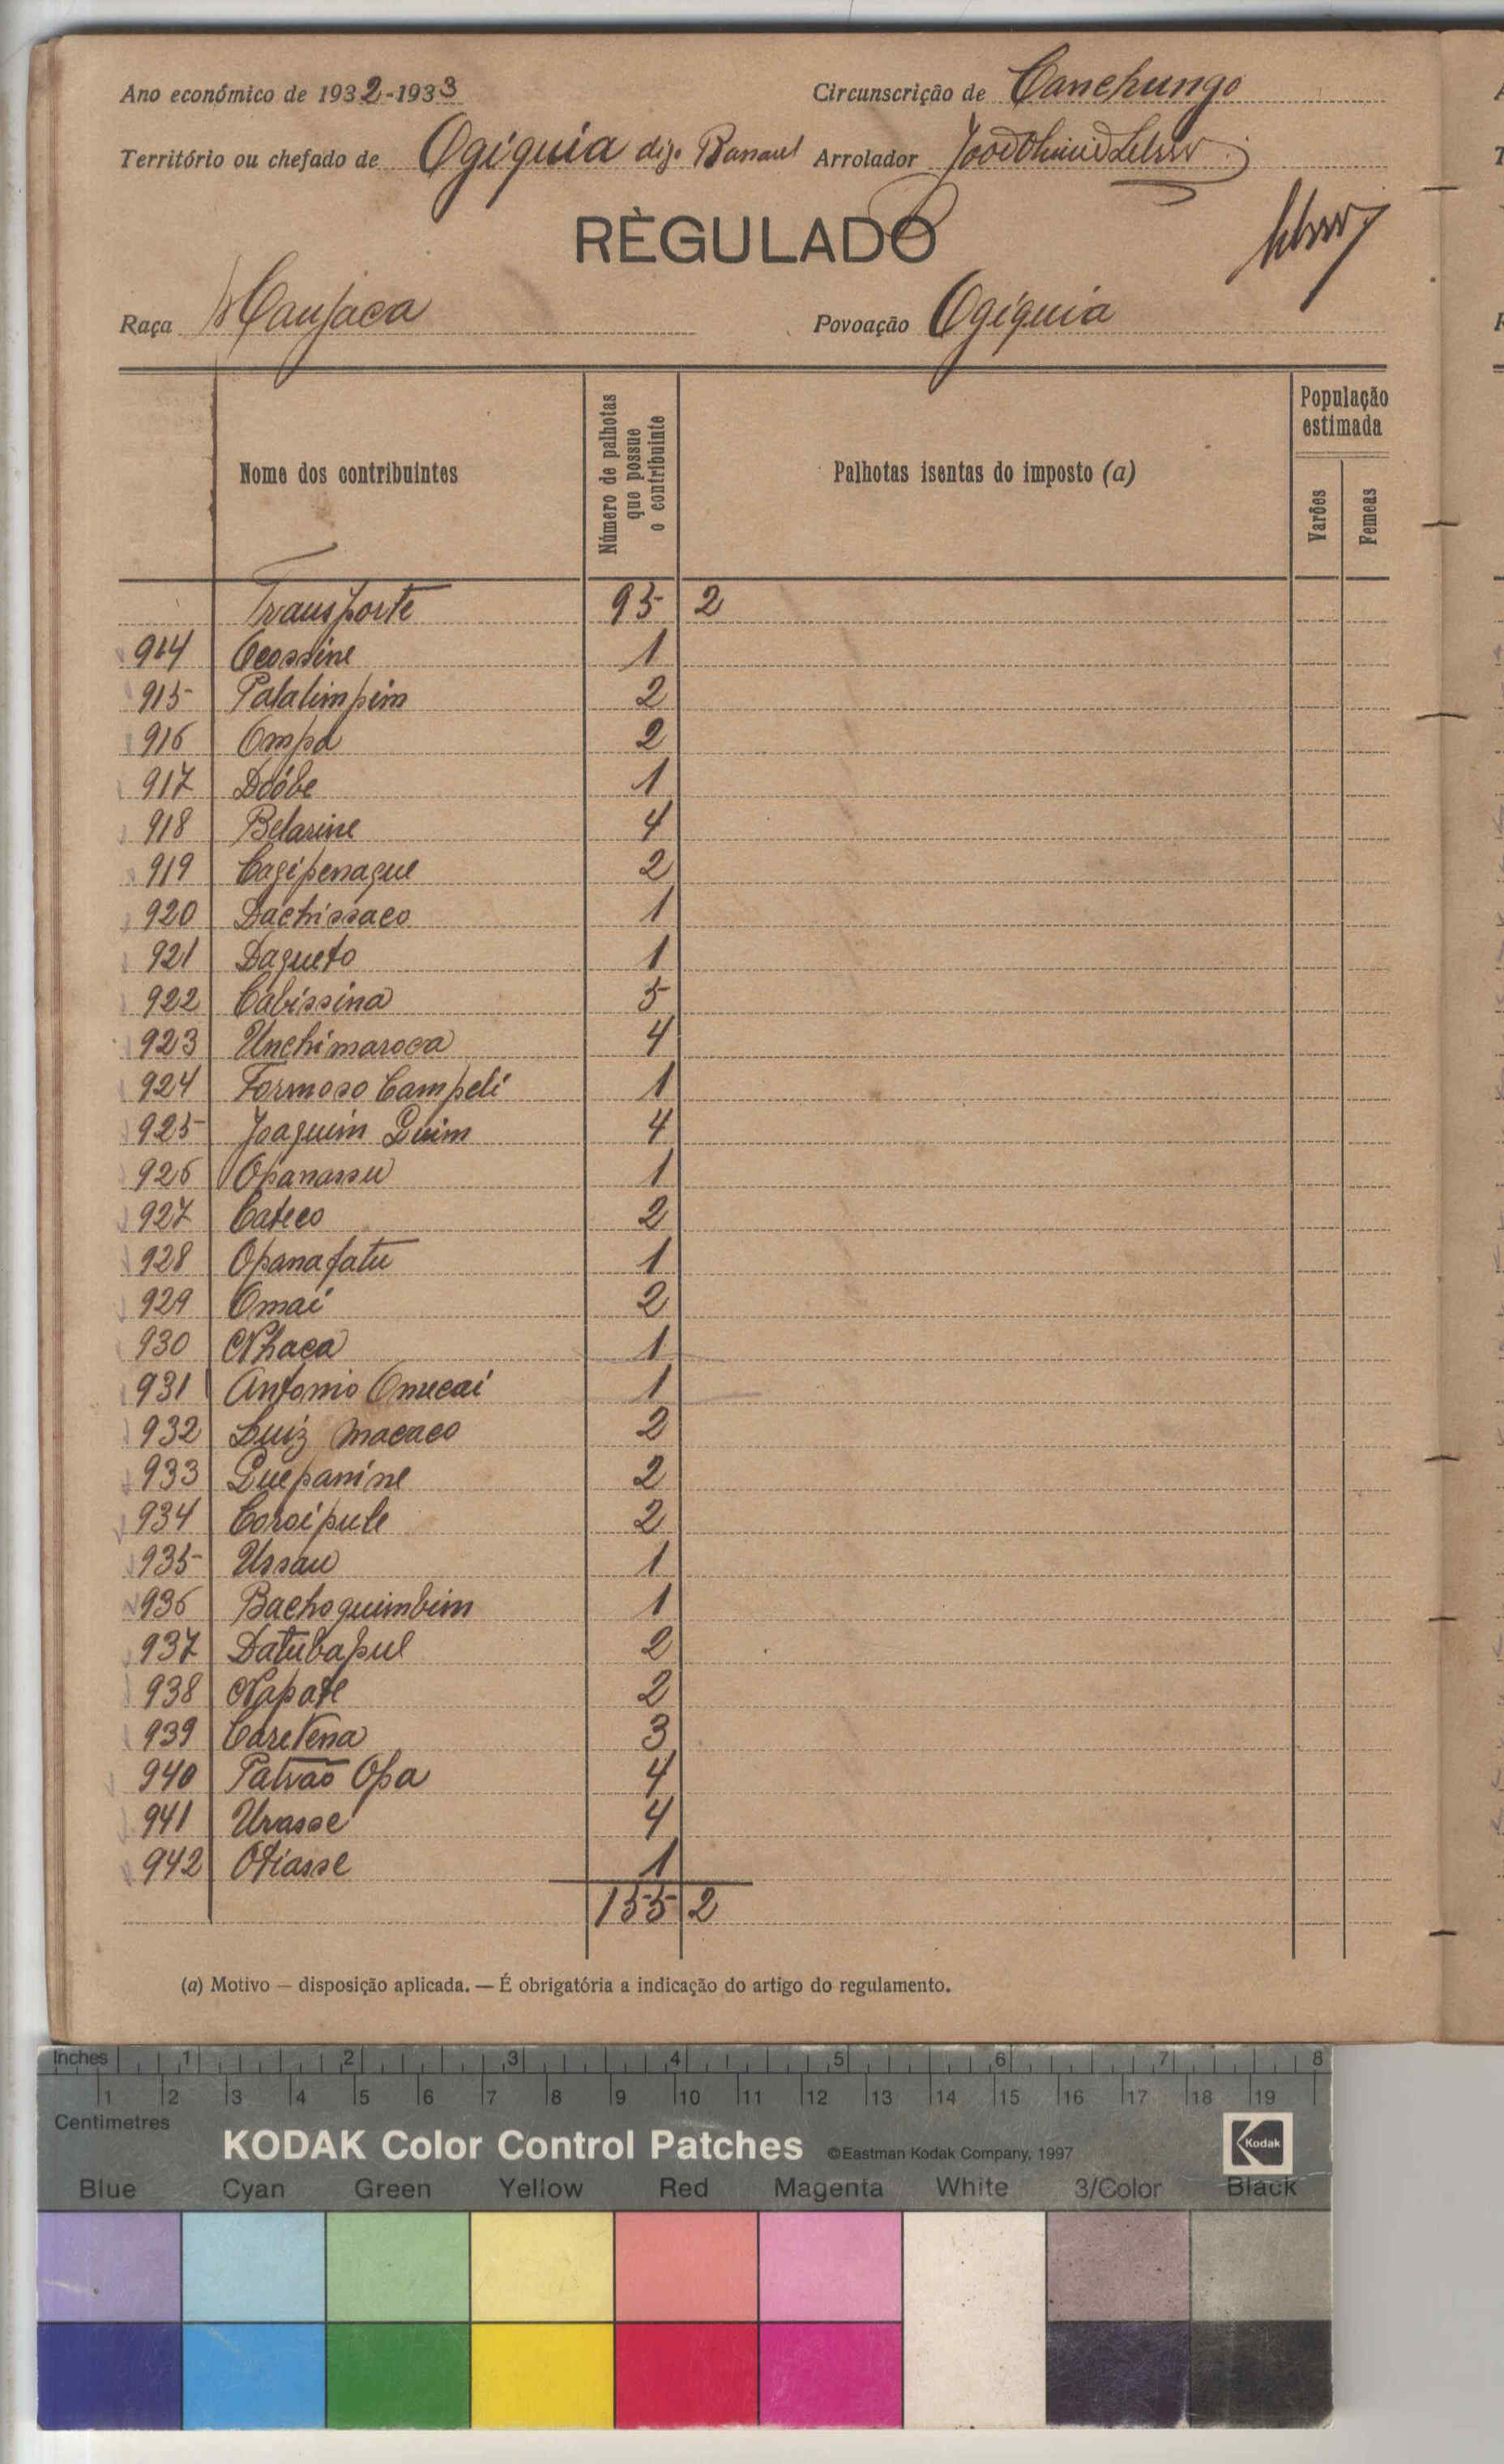 Ano económico de 1932-1933 Circunscrição de Canchungo
Território ou chefado de Ogiquia digo Arrolador
RÈGULADO
Raça Manjaca Povoação Ogiquia
Nome dos contribuintes Número de palhotas que possue o contribuinte Palhotas isentas do imposto (a) População estimada
Varões Femeas
Transporte 95 2
914 Ocossine 1
915 Palalimpim 2
916 Ompá 2
917 Dóóbe 1
918 Belarine 4
919 Cagipenaque 2
920 Dachissaco 1
921 Daqueto 1
922 Cabissina 5
923 Unchimaroca 4
924 Formoso Campeli 1
925 Joaquim Quim 4
926 Opanassu 1
927 Cateco 2
928 Opanafatu 1
929 Omai 2
930 Nhaca 1
931 Antonio Omucai 1
932 Luiz Macaco 2
933 Quepanine 2
934 Coroipule 2
935 Ussau 1
936 Bachoquimbim 1
937 Datubapul 2
938 Napate 2
939 Caretena 3
940 Patrão Opa 4
941 Urasse 4
942 Otiasse 1
155 2
(a) Motivo — disposição aplicada. — É obrigatória a indicação do artigo do regulamento.
Inches 1 2 3 4 5 6 7 8
1 2 3 4 5 6 7 8 9 10 11 12 13 14 15 16 17 18 19
Centimetres
KODAK Color Control Patches ©Eastman Kodak Company, 1997 Kodak
Blue Cyan Green Yellow Red Magenta White 3/Color Black